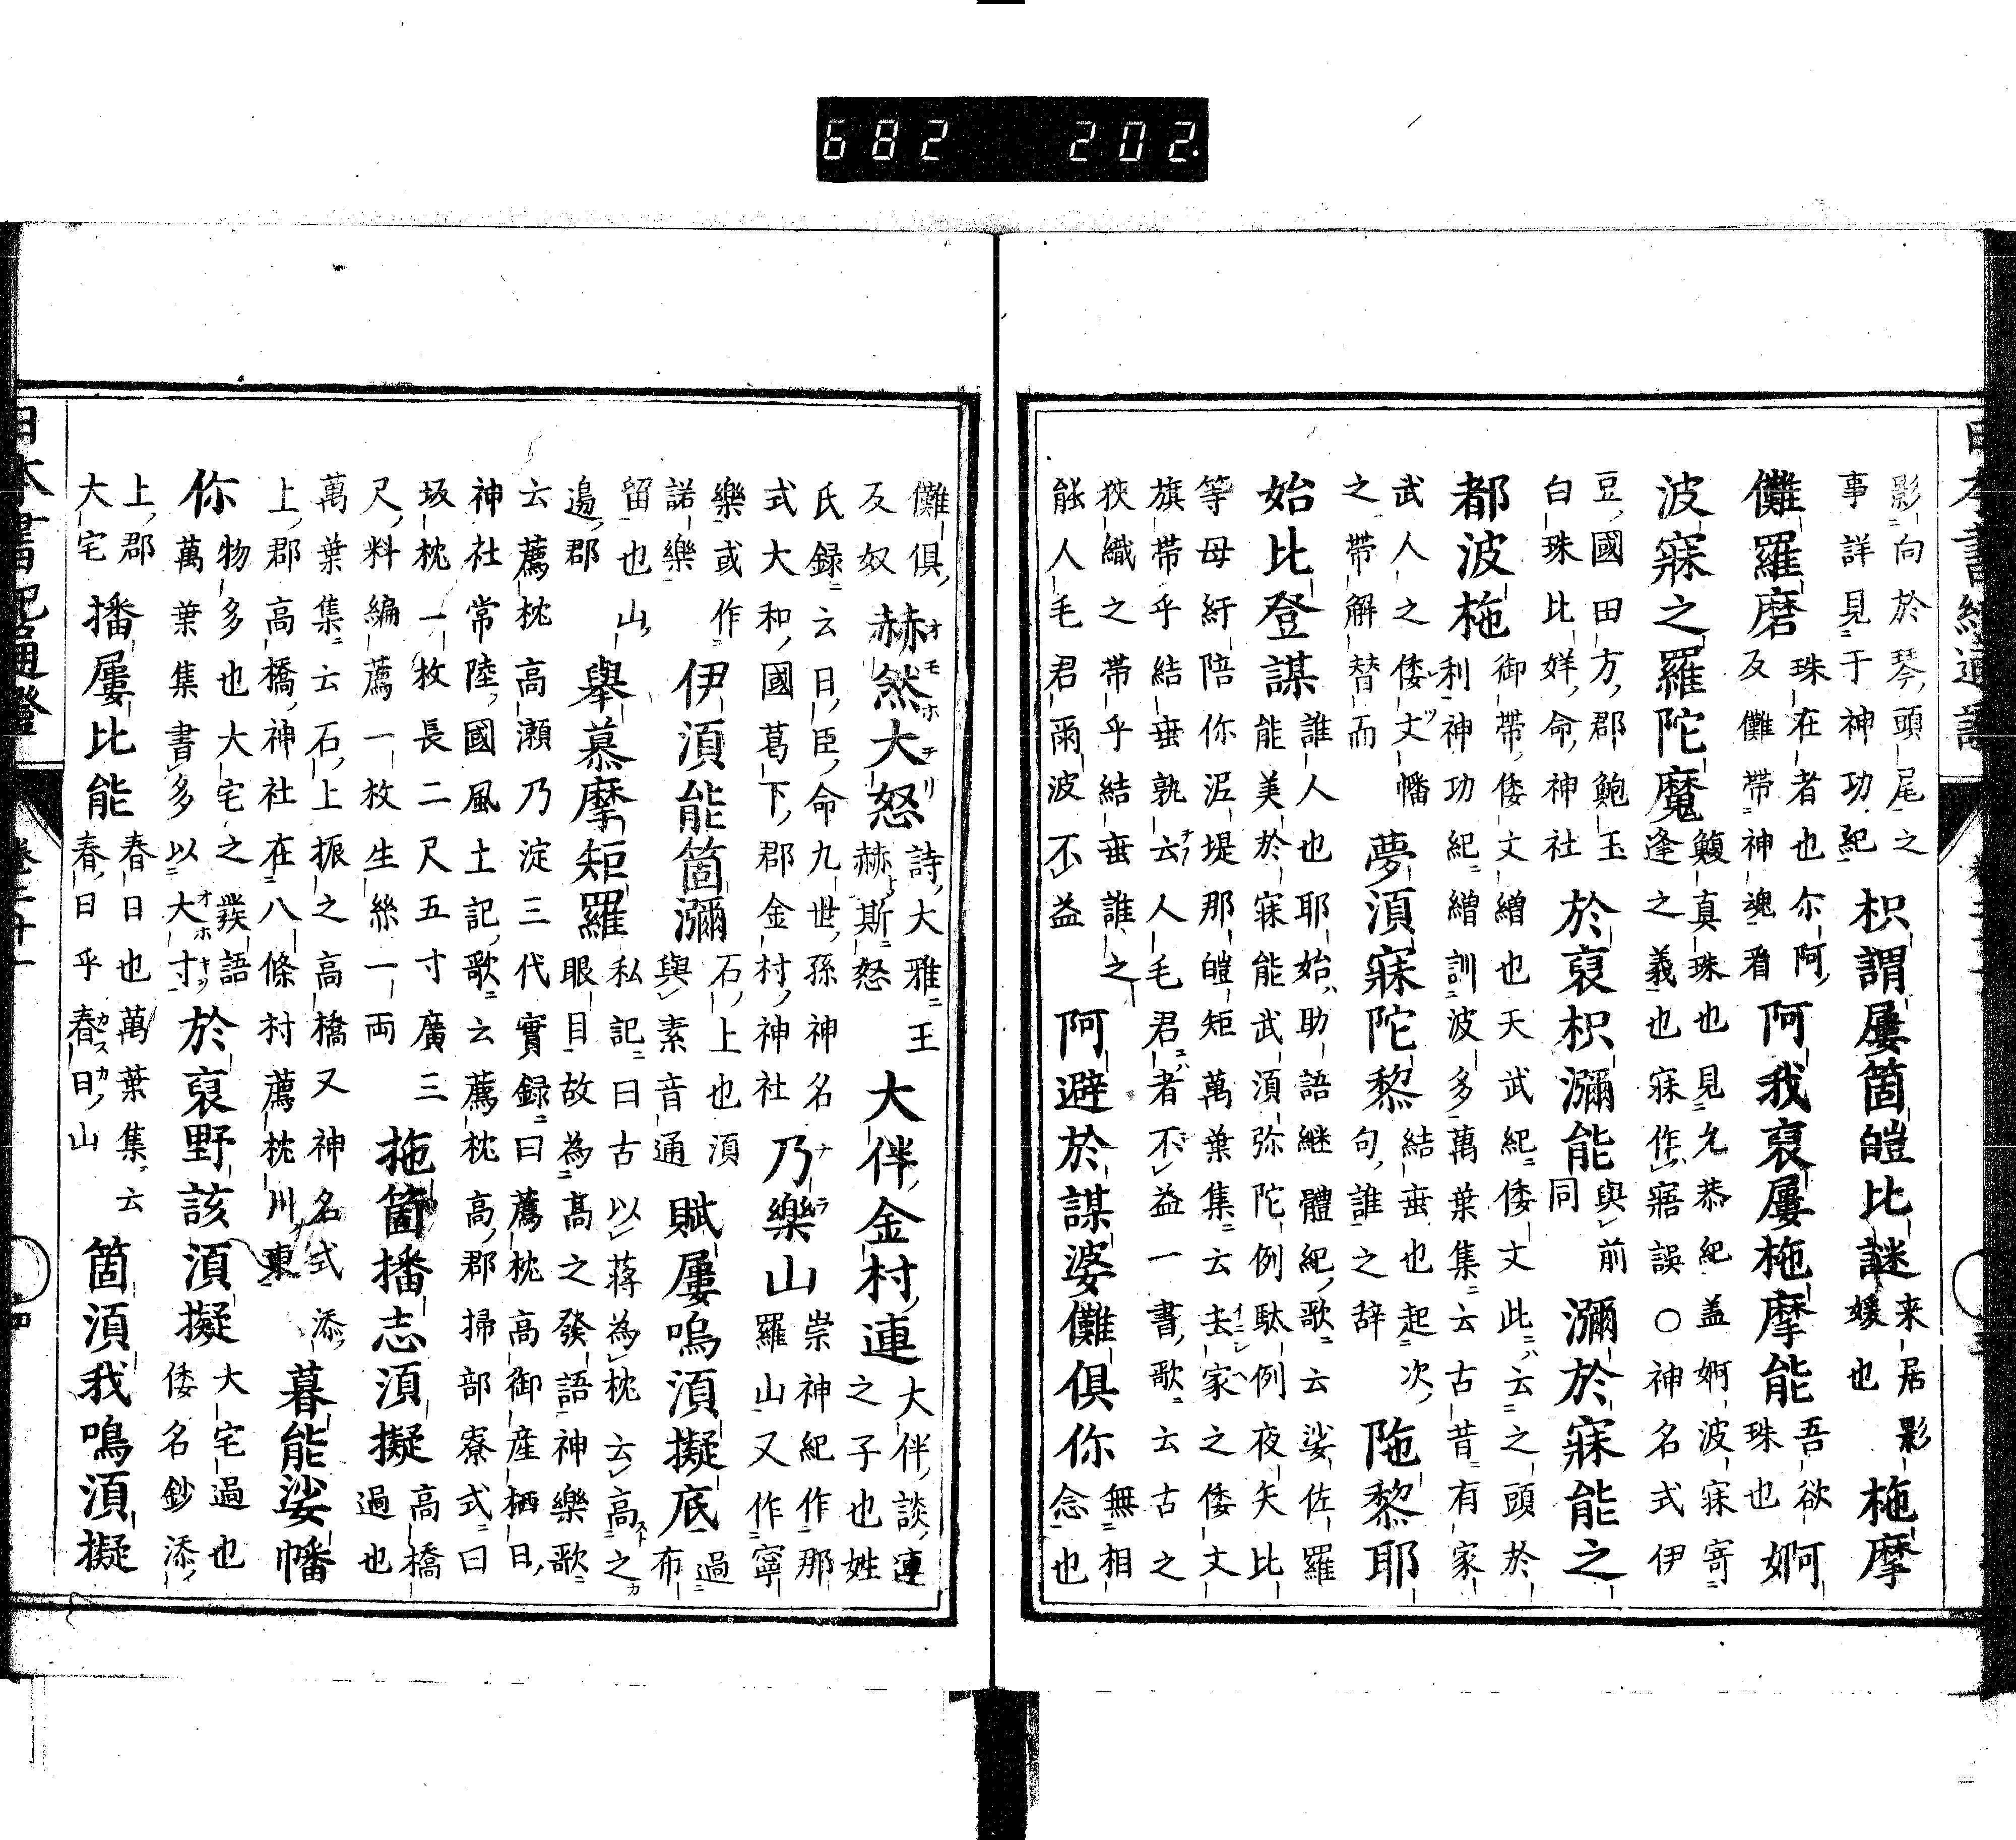 影向於琴頭尾之
事詳見于神功紀
枳謂屢箇皚比謎
来居影
媛也
拖摩
儺羅磨
珠在者也尒阿
反儺帶神魂看
阿我裒屢拖摩能
吾欲
珠也
婀
波寐之羅陀魔
鰒真珠也見允恭紀盖婀波寐寄
逢之義也寐作寤誤〇神名式伊
豆國田方郡鮑玉
白珠比咩命神社
於裒枳瀰能
與前
同
瀰於寐能之
都波拖
御帶倭文繒也天武紀倭文此云之頭於
利神功紀繒訓波多萬葉集云古昔有家
武人之倭文幡
之帶解替而
夢須寐陀黎
結垂也起次
句誰之辞
陁黎耶
始比登謀
誰人也耶始助語継體紀歌云娑佐羅
能美於寐能武須弥陀例駄例夜矢比
等母紆陪你泥堤那皚矩萬葉集云去家之倭文
旗帶乎結垂孰云人毛君者不益一書歌云古之
狹織之帶乎結垂誰之
能人毛君爾波不益
阿避於謀婆儺俱你
無相
念也
儺俱
反奴
赫然大怒
詩大雅王
赫斯怒
大伴金村連
大伴談連
之子也姓
氏録云日臣命九世孫神名
式大和國葛下郡金村神社
乃樂山
崇神紀作那
羅山又作寧
樂或作
諾樂
伊須能箇瀰
石上也須
與素音通
賦屢嗚須擬底
過
布
留也山
邊郡
舉慕摩矩羅
私記曰古以蔣為枕云高之
眼目故為高之發語神樂歌
云薦枕高瀬乃淀三代實録曰薦枕高御産栖日
神社常陸國風土記歌云薦枕高郡掃部寮式曰
坂枕一枚長二尺五寸廣三
尺料編薦一枚生絲一両
拖箇播志須擬
高橋
過也
萬葉集云石上振之高橋又神名式添
上郡高橋神社在八條村薦枕川東
暮能娑幡
你
物多也大宅之發語
萬葉集書多以大寸
於裒野該須擬
大宅過也
倭名鈔添
上郡
大宅
播屢比能
春日也萬葉集云
春日乎春日山
箇須我嗚須擬
日本書紀通證
682 202